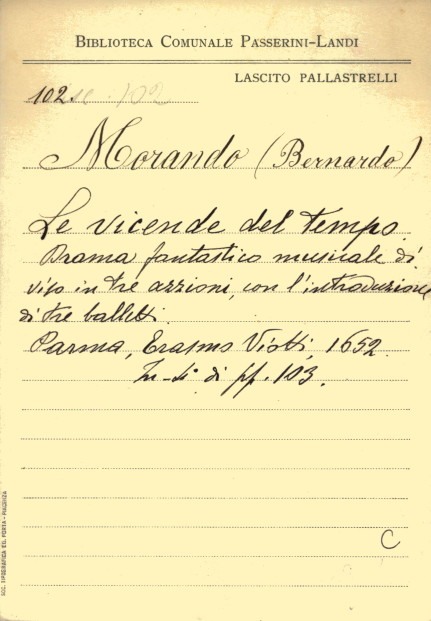 BIBLIOTECA COMUNALE PASSERINI-LANDI
LASCITO PALLASTRELLI
102.
Morando (Bernardo)
Le vicende del tempo.
Drama fantastico musicale di
viso in tre azzioni, con l'introduzione
di tre balletti.
Parma, Erasmo Viotti, 1652.
In-4° di pp. 103.
C
SOC. TIPOGRAFICA ED. PORTA - PIACENZA